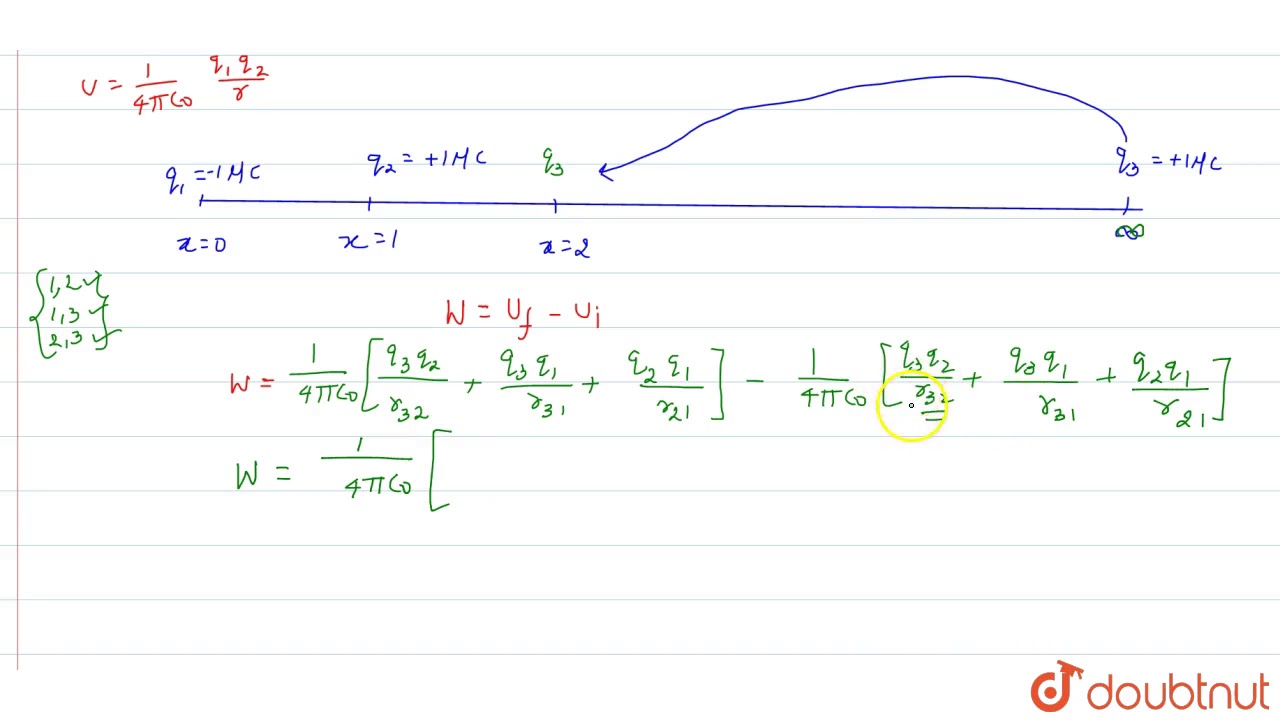 U = 1/4π∈0 q1 q2/r
q1 = -1 μC q2 = +1 μC q3 q3 = +1 μC
x=0 x=1 x=2 ∞
{1,2 ✓}
{1,3 ✓}
{2,3 ✓}
W = Uf - Ui
W = 1/4π∈0 [q3 q2/r32 + q3 q1/r31 + q2 q1/r21] - 1/4π∈0 [q3 q2/r32 + q3 q1/r31 + q2 q1/r21]
W = 1/4π∈0 [
doubtnut